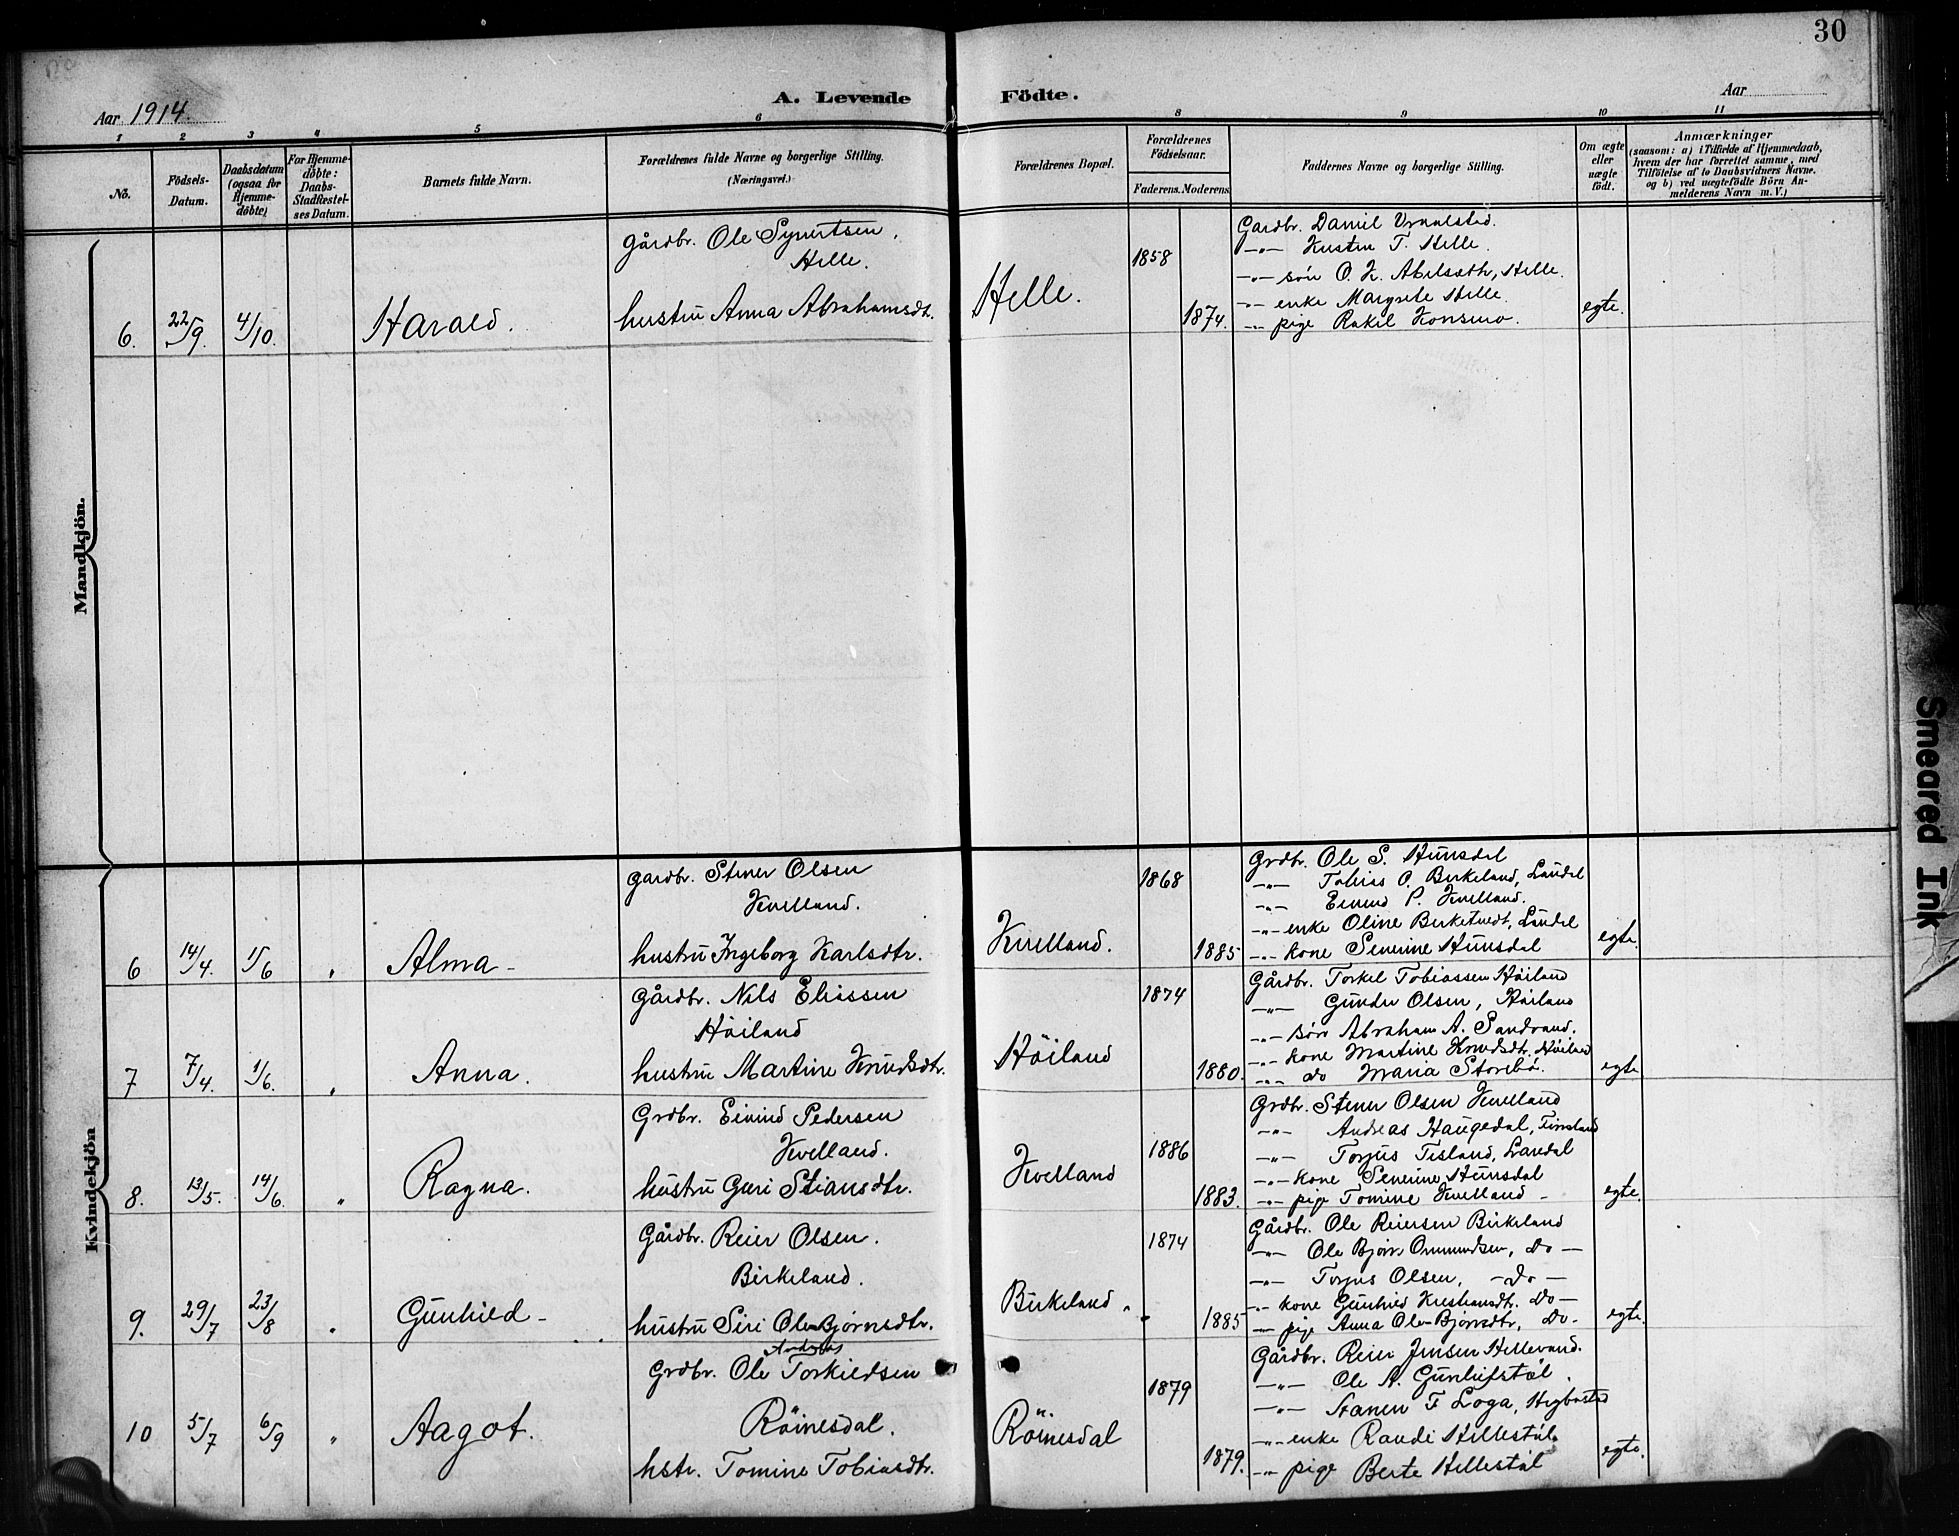 30
Aar 1914.
A. Levende Födte.
Aar
1 2 3 4 5 6 8 9 10 11
No.
Födsels-Datum.
Daabsdatum (ogsaa for Hjemmedöbte)
For Hjemmedöbte: Daabs-Stadfæstelses Datum.
Barnets fulde Navn.
Forældrenes fulde Navne og borgerlige Stilling. (Næringsvei.)
Forældrenes Bopæl.
Forældrenes Födselsaar.
Faderens. Moderens.
Faddernes Navne og borgerlige Stilling.
Om ægte eller uægte födt.
Anmærkninger
(saasom: a) i Tilfælde af Hjemmedaab, hvem der har forrettet samme, med Tilföielse af to Daabsvidners Navne. og b) ved uegtefödte Börn Anmelderens Navn m. V.)
Mandkjön.
6. 22/9. 4/10. Harald.
Gårdbr. Ole Syvertsen,
Helle.
hustru Anna Abrahamsdt.
Helle.
1858
1874.
Gardbr. Daniel
-"- T. Helle.
-"- sön O. K. Helle.
-"- enke Margrete Helle.
-"- pige Rakel Konsmo.
egte.
Kvindekjön
6 14/4. 1/6 " Alma -
Gardbr. Stener Olsen
Kvelland.
hustru Ingeborg Karlsdtr.
Kvelland.
1868
1885
Grdbr. Ole S. Hunsdal
-"- Tobias O. Birkeland, Laudal
-"- Eivind P. Kvelland.
-"- enke Oline Birketvedt, Laudal
-"- kone Severine Hunsdal
egte.
7 7/4. 1/6. " Anna.
Gårdbr. Nils Eliassen
Höiland
hustru Martine Knudsdtr.
Höiland
1874
1880.
Gårdbr. Torkel Tobiassen Höiland
-"- Gunder Olsen, Höiland
-"- sön Abraham A. Sandvand.
-"- kone Martine Knudsdtr. Höiland
-"- do Maria Storebö.
egte
8. 13/5. 14/6. " Ragna.
Grdbr. Eivind Pedersen
Kvelland.
hustru Guri Stiansdtr.
Kvelland
1886
1883.
Grdbr. Stener Olsen Kvelland
-"- Andreas Haugedal, Finsland
-"- Torjus Tisland, Laudal
-"- kone Severine Hunsdal
-"- pige Tomine Kvelland -
egte.
9. 29/7 23/8 " Gunhild -
Gårdbr. Reier Olsen.
Birkeland.
hustru Siri Ole-Bjørnsdtr.
Birkeland.
1874
1885
Gårdbr. Ole Reiersen Birkeland
-"- Ole Bjørn Ommundsen, Do -
-"- Torjus Olsen, - Do -
-"- kone Gunhild Kristiansdtr. Do -
-"- pige Anna Ole-Bjørnsdtr, Do -
egte.
10 5/7 6/9 " Aagot.
Andreas
Grdbr. Ole Torkildsen
Röinesdal.
hstr. Tomine Tobiasdtr.
Röinesdal
1879
1879.
Gårdbr. Reier Jensen Helleland.
-"- Ole A. Gunlufstöl.
-"- F Loga,
-"- enke Randi Hillestöl
-"- pige Berte Hillestöl
egte.
Smeared Ink